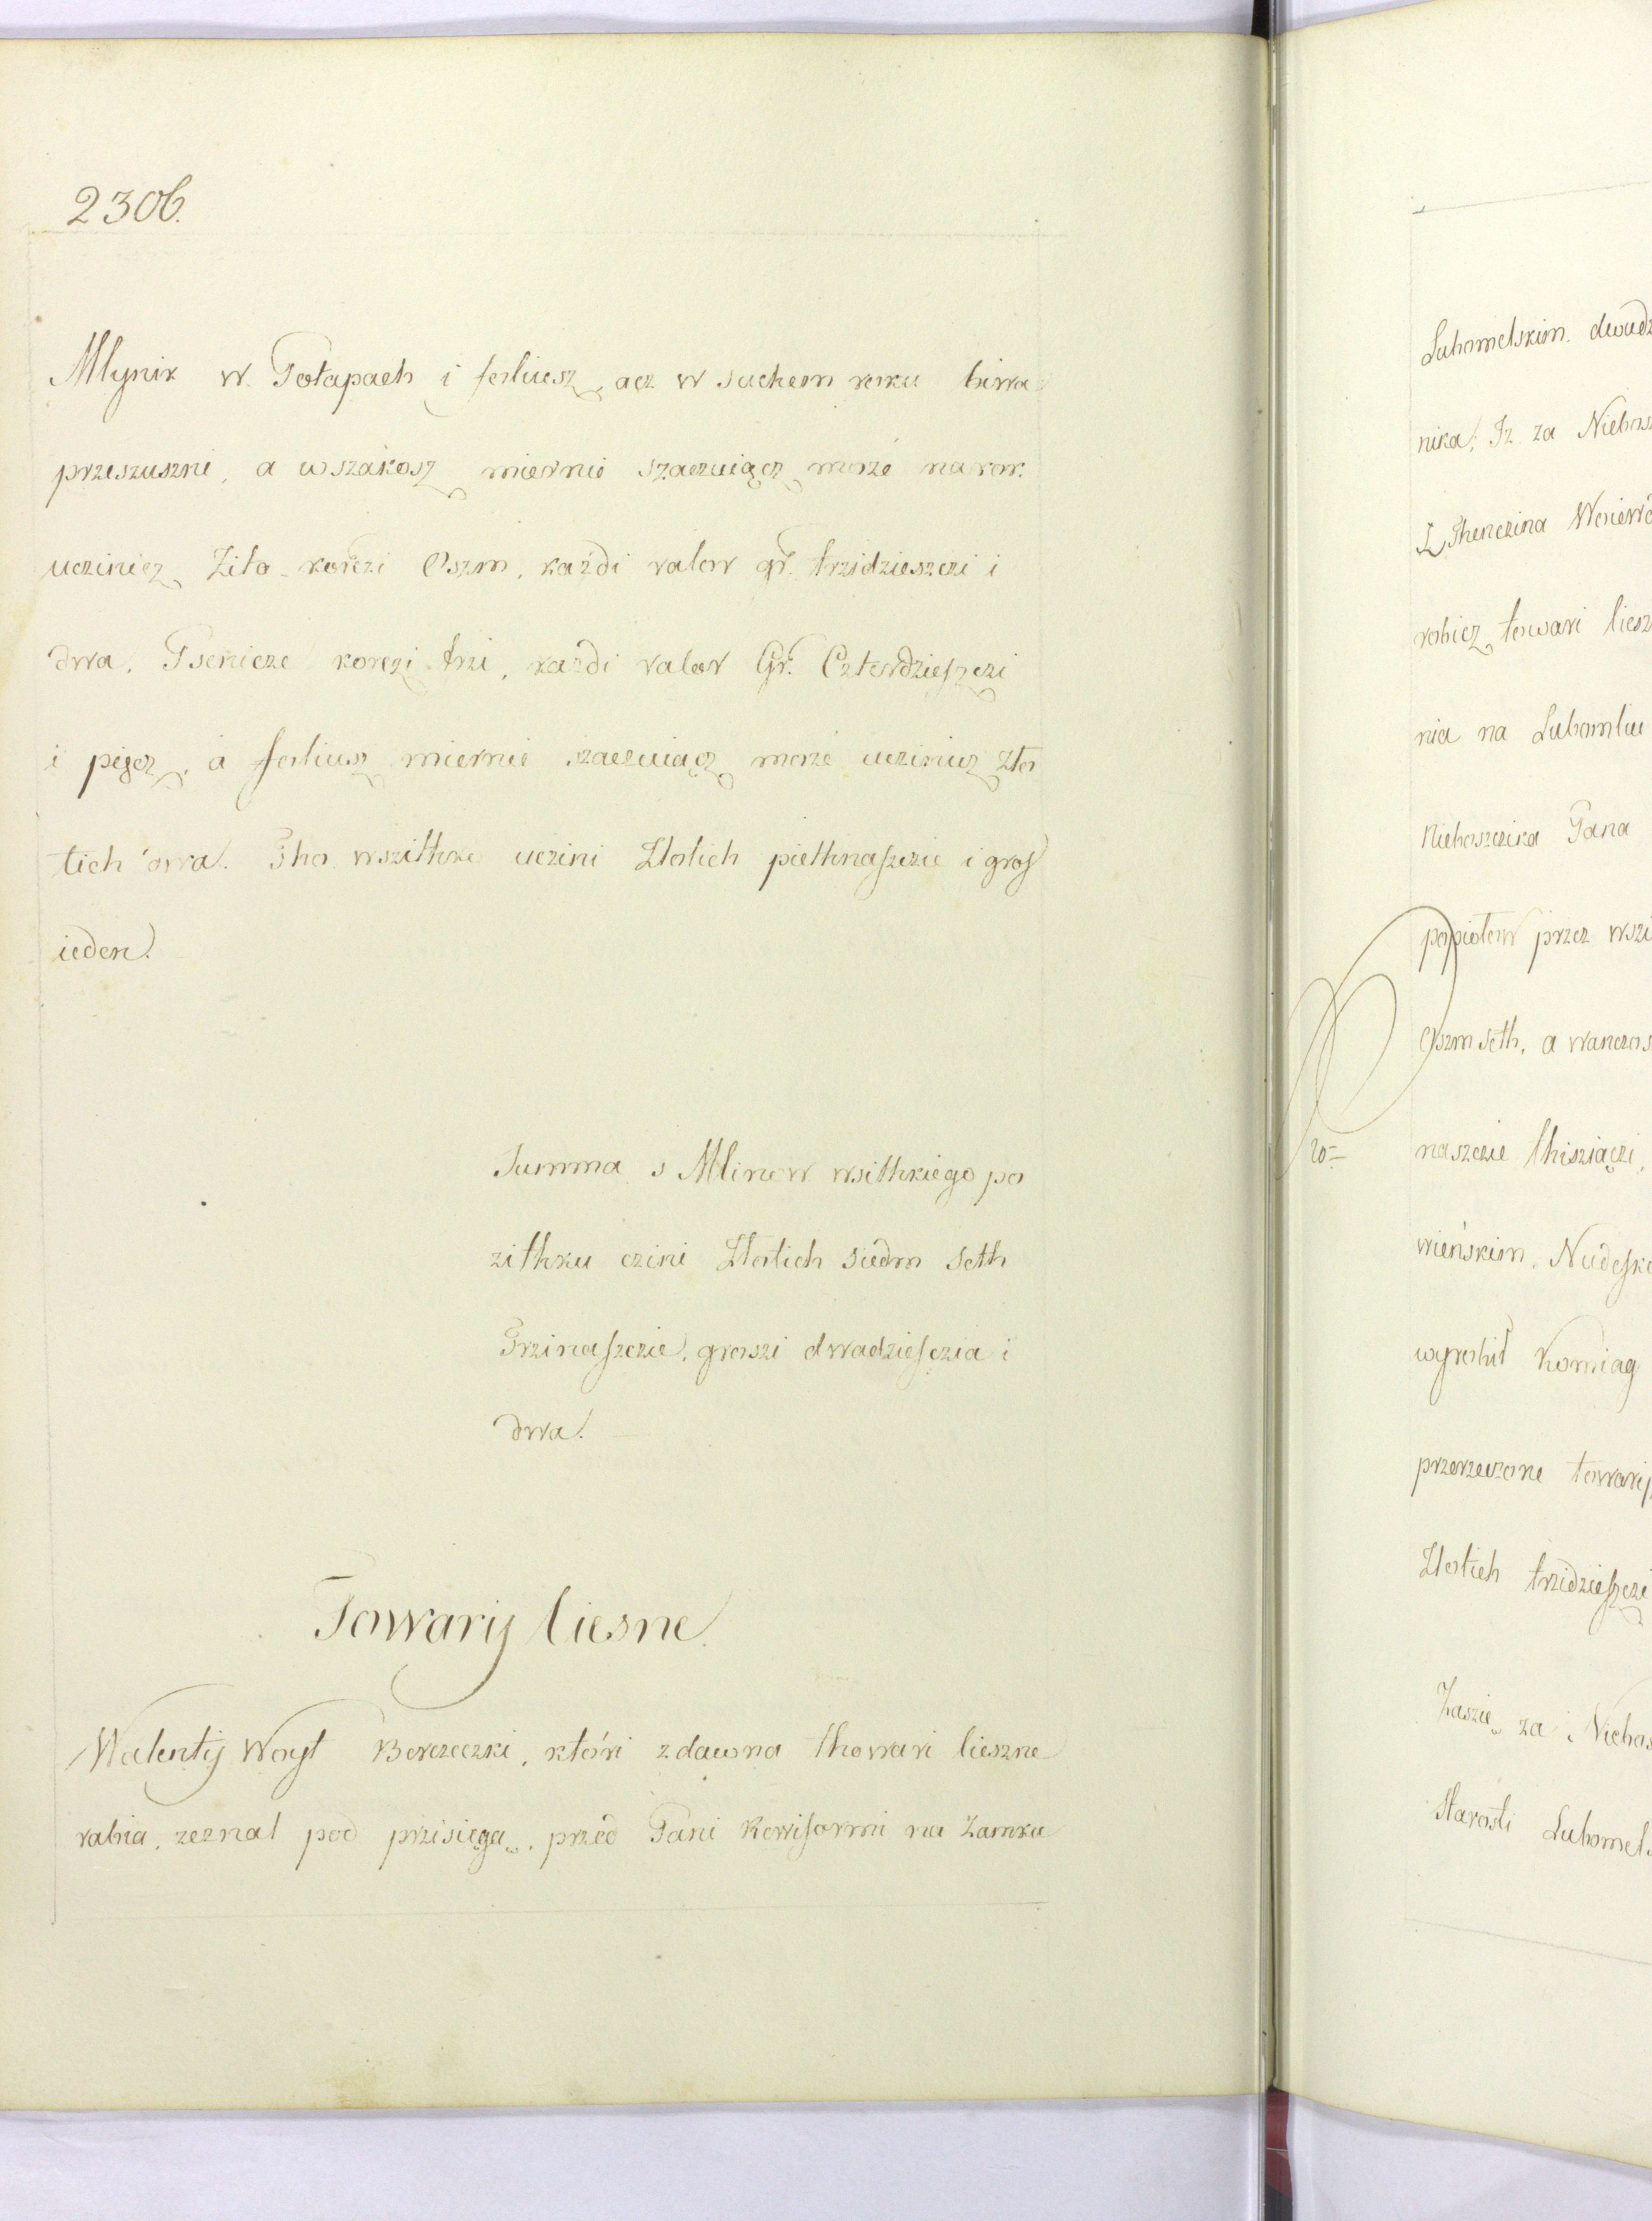 230b.
Mlynik w Połapach i foliusz, acz w suchem roku biwa
przeszuszni, a wszakosz miernie szaczuiącz może na rok
uczinicz Zita korczi Oszm, każdi valor gr. trzidzieszczi i
dwa, Psenicze korczi trzi, każdi valor Gr. Czterdzieszczi
i pięcz, a foliusz miernie szaczuiącz może uczinicz zło
tich dwa. Tho wszithko uczini Złotich piethnaszczie i gros
ieden.
Summa s Mlinow wsithkiego po
zithku czini Złotich siedm seth
Trzinaszczie, groszi dwadziesczia i
dwa.
Towarij liesne
Walentij Woyt Borzeczki, któri zdawna thowari lieszne
rabia, zeznal pod przisięgą, przed Pani Rewisormi na Zamku
Lubomelskim, dwudz
nika, Iz za Niebos
Z Thenczina Woiewo
robicz towari liesz
nia na Lubomliu
Niebaszczika Pana
popiołow przez wszi
Oszm seth, a wanczos
20=
naszczie thisziączi,
wieńskim, Nudesko
wyrobił Komiag
przerzeczone towarij
Złotich trzidzieszczi
Zaszię za Niebos
Starosti Lubomels